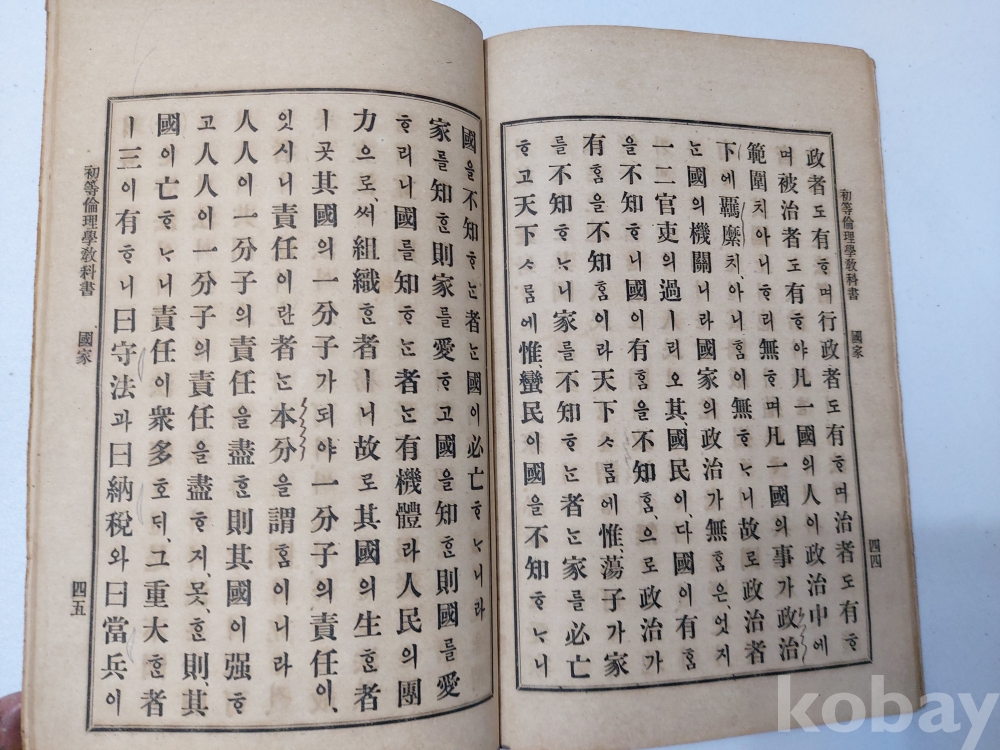 初等倫理學教科書 國家 四四
政者도有ᄒᆞ며行政者도有ᄒᆞ며治者도有ᄒᆞ
며被治者도有ᄒᆞ야凡一國의人이政治中에
範圍치아니ᄒᆞ리無ᄒᆞ며凡一國의事가政治
下에羈縻치,아니ᄒᆞᆷ이無ᄒᆞᄂᆞ니故로政治者
ᄂᆞᆫ國의機關니라國家의政治가無ᄒᆞᆷ은,엇지
一二官吏의過ㅣ리오其,國民이,다國이有ᄒᆞᆷ
을不知ᄒᆞ니國이有ᄒᆞᆷ을不知ᄒᆞᆷ,으로政治가
有ᄒᆞᆷ을不知ᄒᆞᆷ이라天下ᄉᆞᄅᆞᆷ에惟,蕩子가家
를不知ᄒᆞᄂᆞ니家를不知ᄒᆞᄂᆞᆫ者ᄂᆞᆫ家를必亡
ᄒᆞ고天下ᄉᆞᄅᆞᆷ에惟,蠻民이國을不知ᄒᆞᄂᆞ니
國을不知ᄒᆞᄂᆞᆫ者ᄂᆞᆫ國이必亡ᄒᆞᄂᆞ니라
家를知ᄒᆞᆫ則家를愛ᄒᆞ고國을知ᄒᆞᆫ則國를愛
ᄒᆞ리니國를知ᄒᆞᄂᆞᆫ者ᄂᆞᆫ有機體라人民의團
力으로,써組織ᄒᆞᆫ者ㅣ니故로其國의生ᄒᆞᆫ者
ㅣ곳其國의一分子가되야一分子의責任이,
잇시니責任이란者ᄂᆞᆫ本分을謂ᄒᆞᆷ이니라
人人이一分子의責任을盡ᄒᆞᆫ則其國이强ᄒᆞ
고人人이一分子의責任을盡ᄒᆞ지,못,ᄒᆞᆫ則,其
國이亡ᄒᆞᄂᆞ니責任이衆多호ᄃᆡ,그重大ᄒᆞᆫ者
ㅣ三이有ᄒᆞ니曰守法과曰納稅와曰當兵이
初等倫理學教科書 國家 四五
kobay